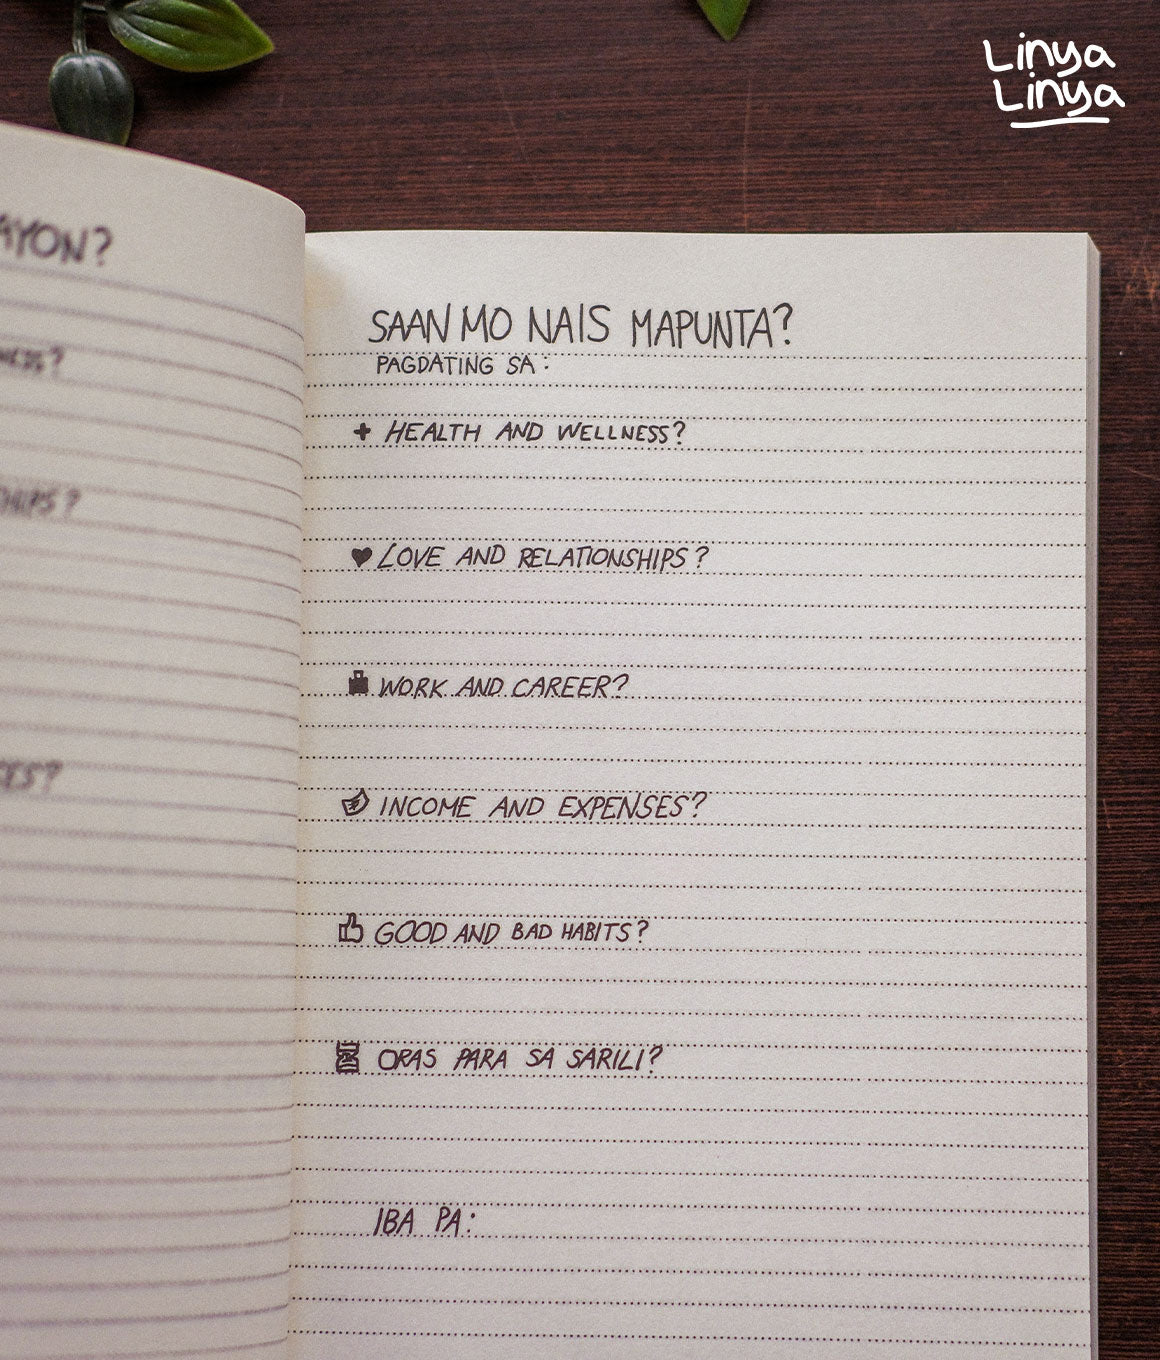 Linya
Linya
SAAN MO NAIS MAPUNTA?
PAGDATING SA:
HEALTH AND WELLNESS?
LOVE AND RELATIONSHIPS?
WORK AND CAREER?
INCOME AND EXPENSES?
GOOD AND BAD HABITS?
ORAS PARA SA SARILI?
IBA PA: